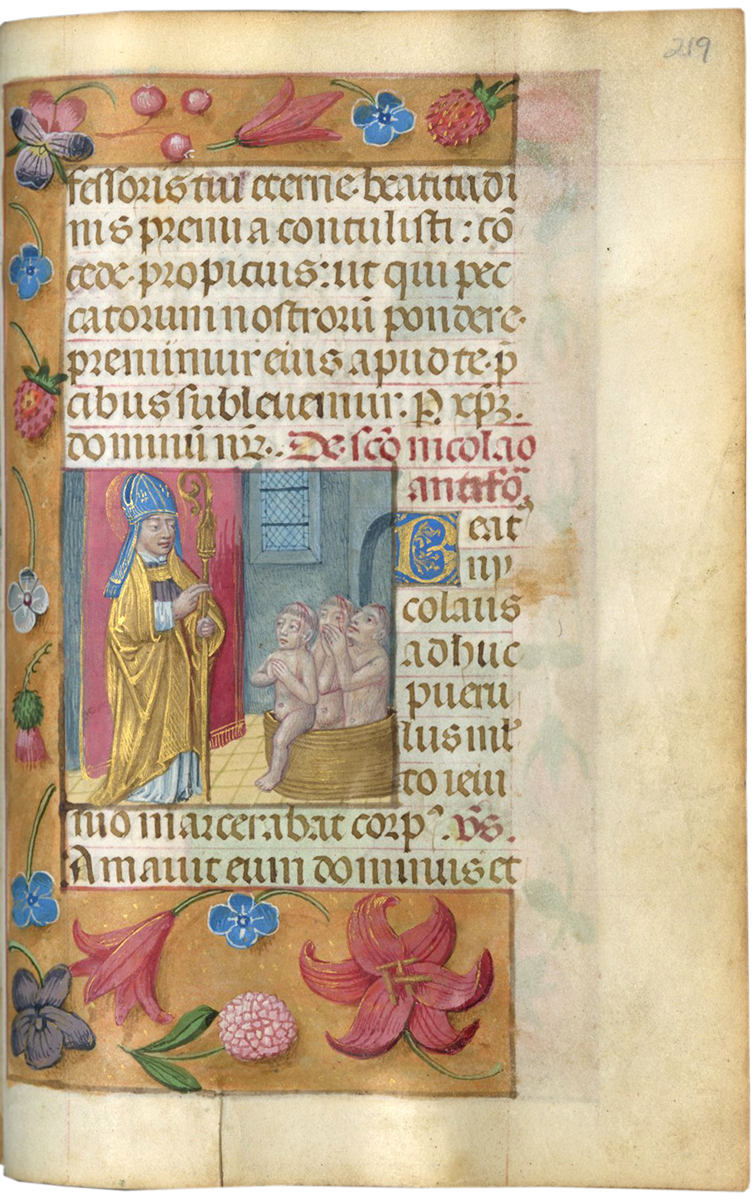 219
fessoris tui eterne beatitudi
nis premia contulisti: cō
cede propicius: ut qui pec
catorum nostrorū pondere
premimur eius apud te p̄
cibus subleuemur. P xp̄ꝫ.
dominū nr̄ꝫ. De sc̄o nicolao
antifō
Beatꝰ
ny
colaus
adhuc
pueru
lus ml̄
to ieiu
nio marcerabat corpꝰ. v̄s.
Amauit eum dominus et